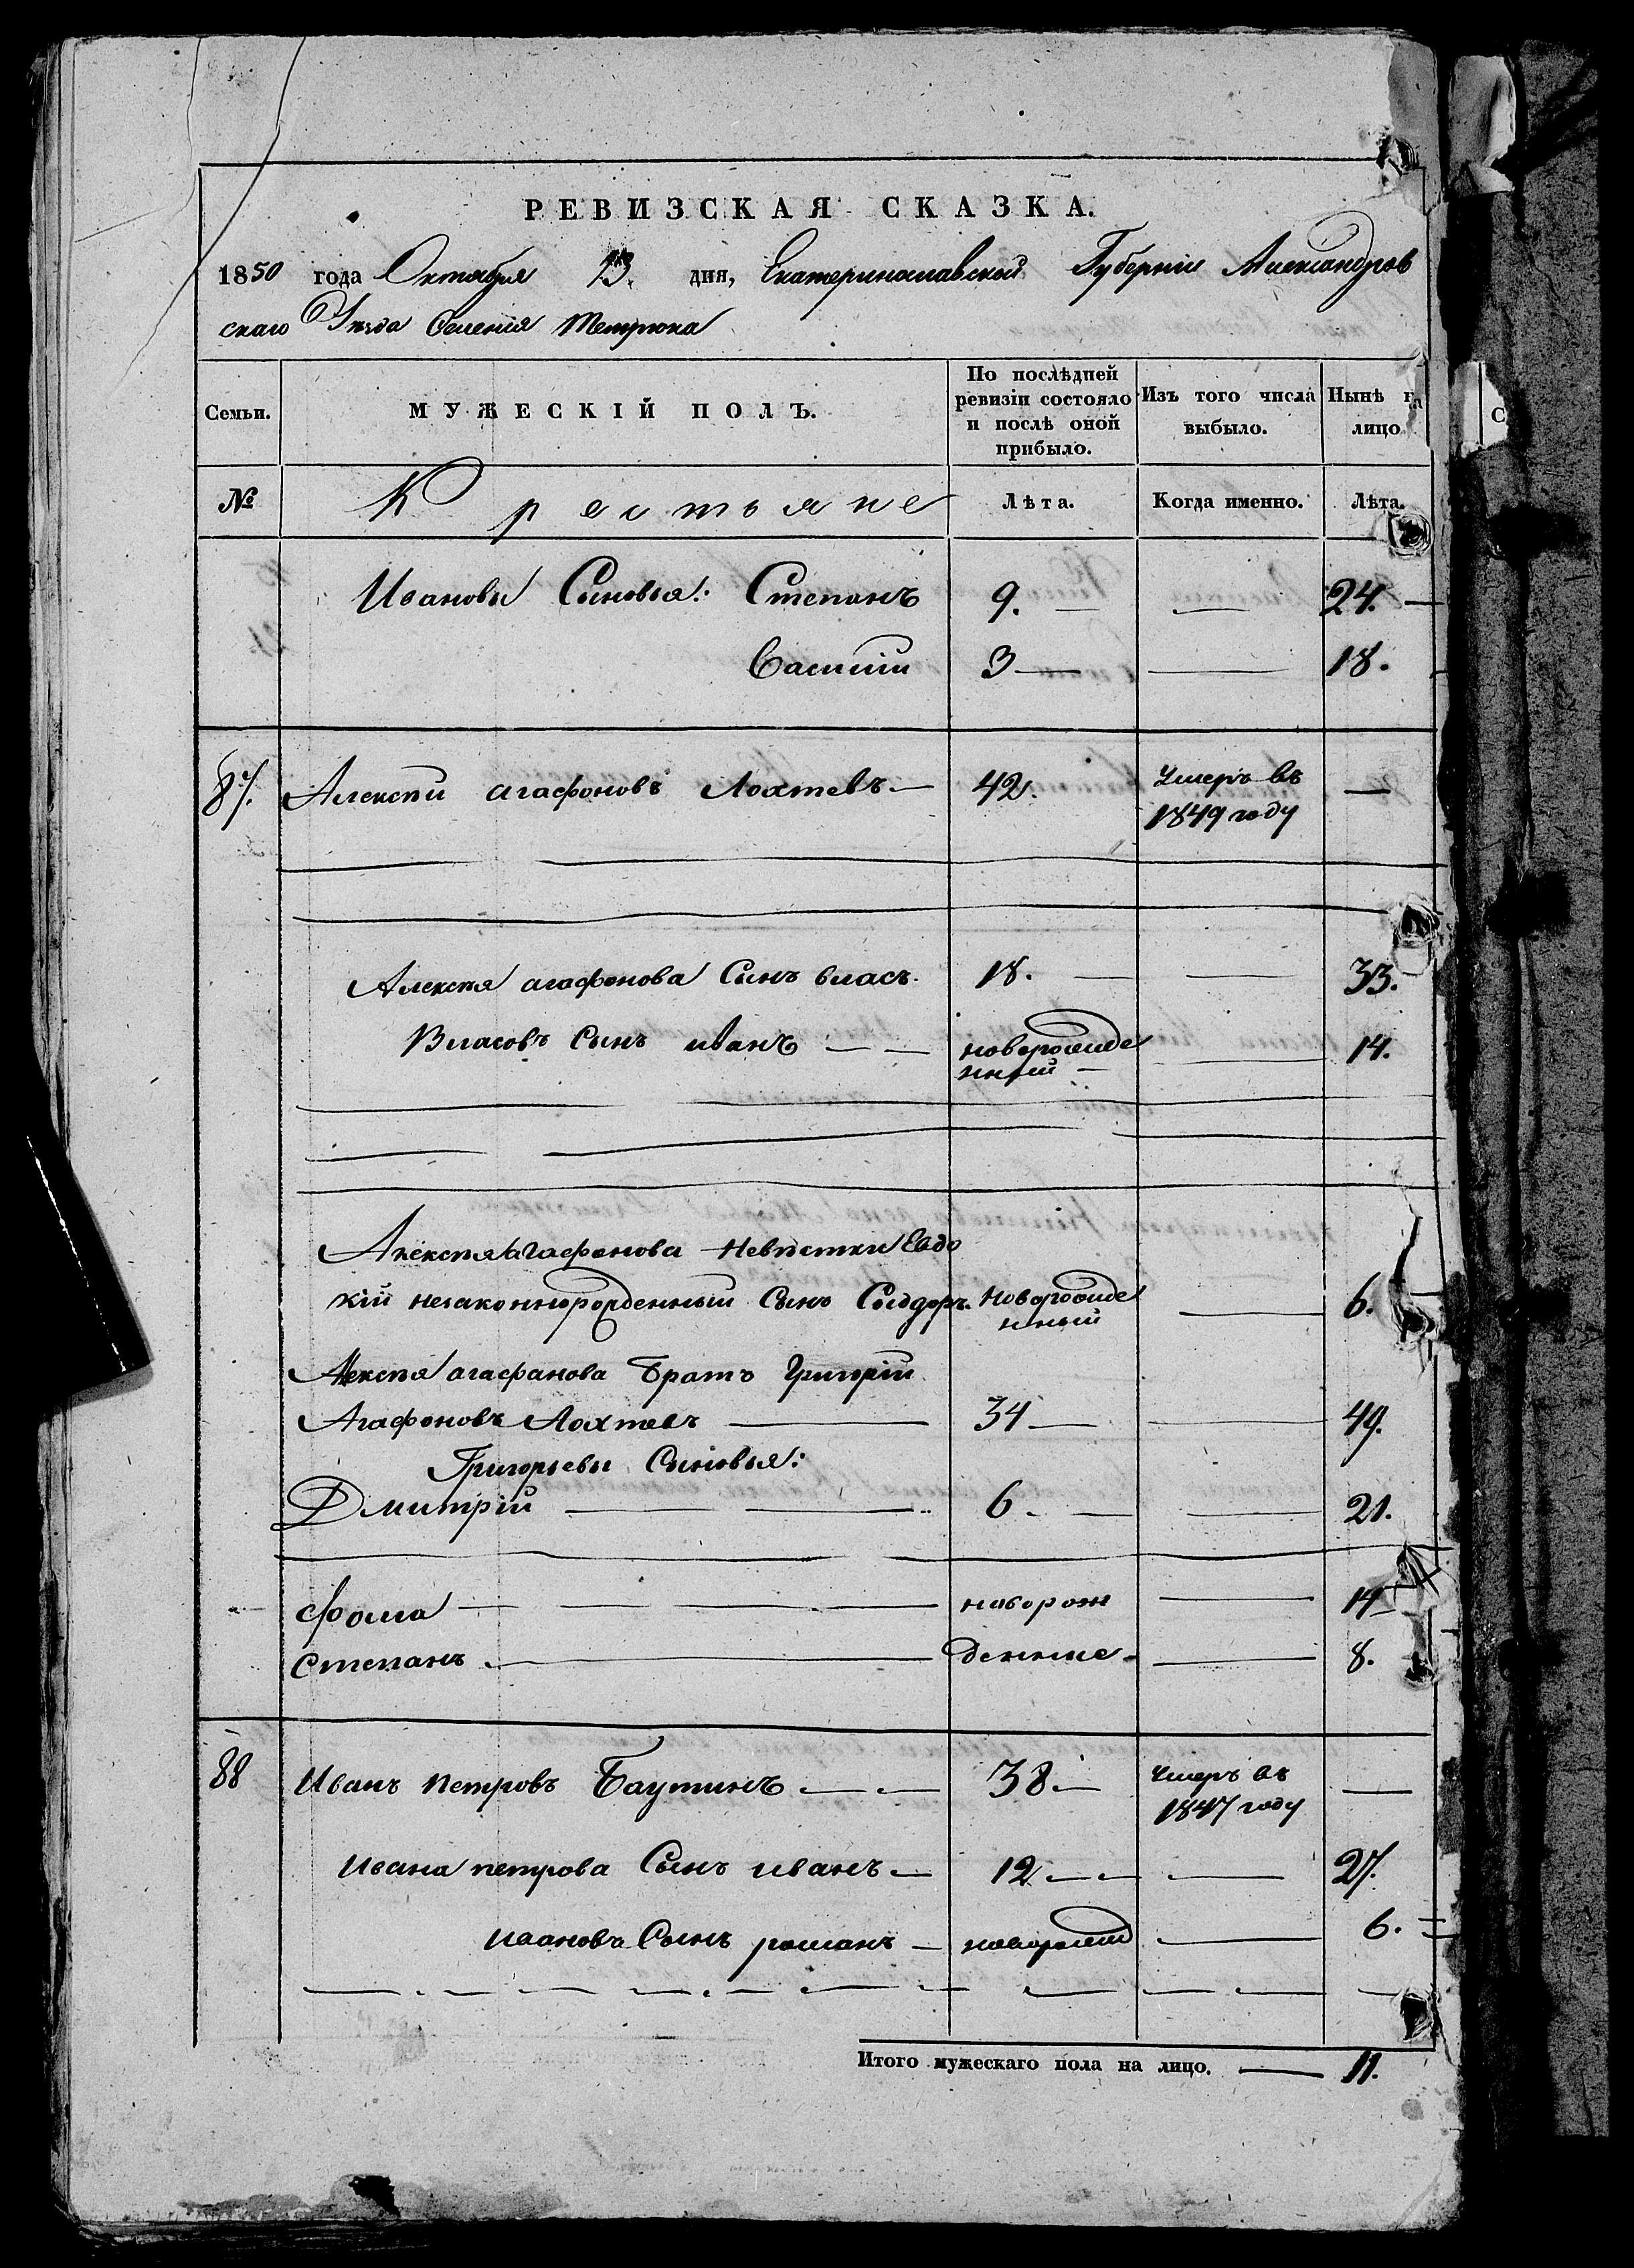 РЕВИЗСКАЯ СКАЗКА.
1850 года Октября 23. дня, Екатеринославской Губерніи Александров
скаго Уѣзда Селенія Темрюка
Семьи.
МУЖЕСКІЙ ПОЛЪ.
По послѣдней
ревизіи состояло
и послѣ оной
прибыло.
Изъ того числа
выбыло.
Нынѣ на
лицо
№
Крестьяне
Лѣта.
Когда именно.
Лѣта.
Ивановы Сыновья: Степанъ 9. — — 24. —
Василій 3 — — 18.
87. Алексѣй агафоновъ Лохтевъ — 42. Умеръ въ —
1849 году
Алексѣя агафонова Сынъ власъ 18. — — 33.
Власовъ Сынъ иванъ — — новорожде — 14.
нный —
Алексѣя агафонова Невѣстки Евдо
кіи незаконнорожденный Сынъ Сыдоръ. Новорожде — 6.
нный
Алексѣя агафанова Братъ Григрій
Агафоновъ Лохтевъ — 34 — — 49.
Григорьевы Сыновья:
Дмитрій — — 6 — — 21.
Фома — — — — новорож — 14
Степанъ — денные — — 8.
88 Иванъ петровъ Баутинъ — — 38 — Умеръ въ —
1847 году
Ивана петрова Сынъ иванъ — 12 — — — 27.
Ивановъ Сынъ романъ — новорожд — 6.
Итого мужескаго пола на лицо. — 11.